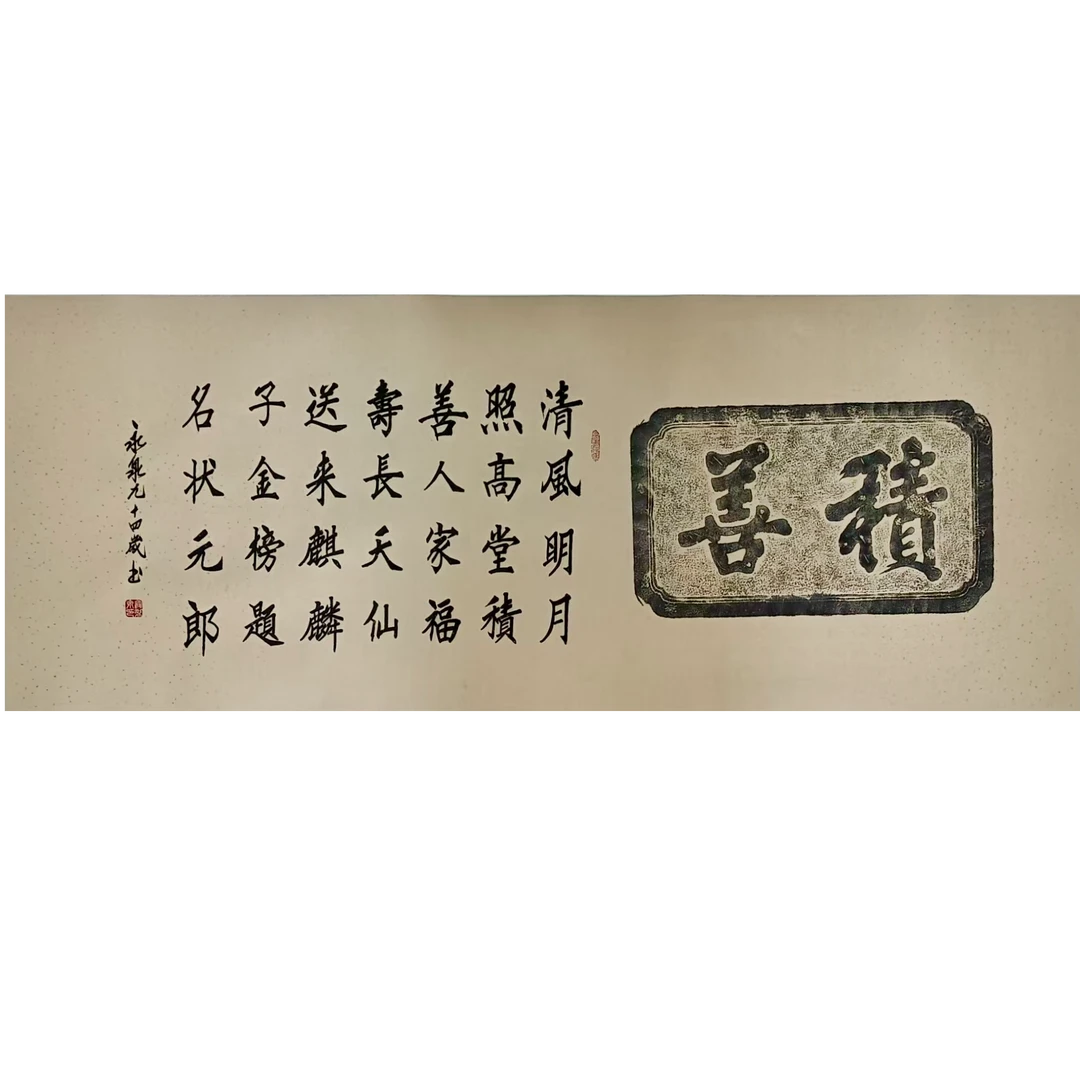 積善
清風明月
照高堂積
善人家福
壽長天仙
送来麒麟
子金榜題
名状元郎
永泉九十四歲书